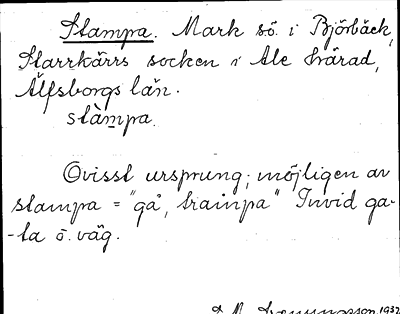 Stampa. Mark sö. i Björbäck,
Starrkärrs socken i Ale härad,
Älfsborgs län.
stàmpa.
Ovisst ursprung; möjligen av
stampa = "gå, trampa" Invid ga-
-ta o. väg.
1932